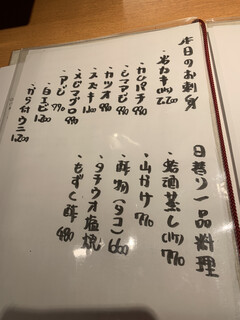 本日のお刺身
・岩カキ(小) 2,200
・カンパチ 990
・シマアジ 990
・カツオ 990
・スズキ 1,100
・メジマグロ 990
・アジ 990
・白エビ 1,200
・から付ウニ 1,200
日替り一品料理
・若酒蒸し(小) 770
・山かけ 770
・酢物(タコ) 660
・タチウオ塩焼
・もずく酢 480